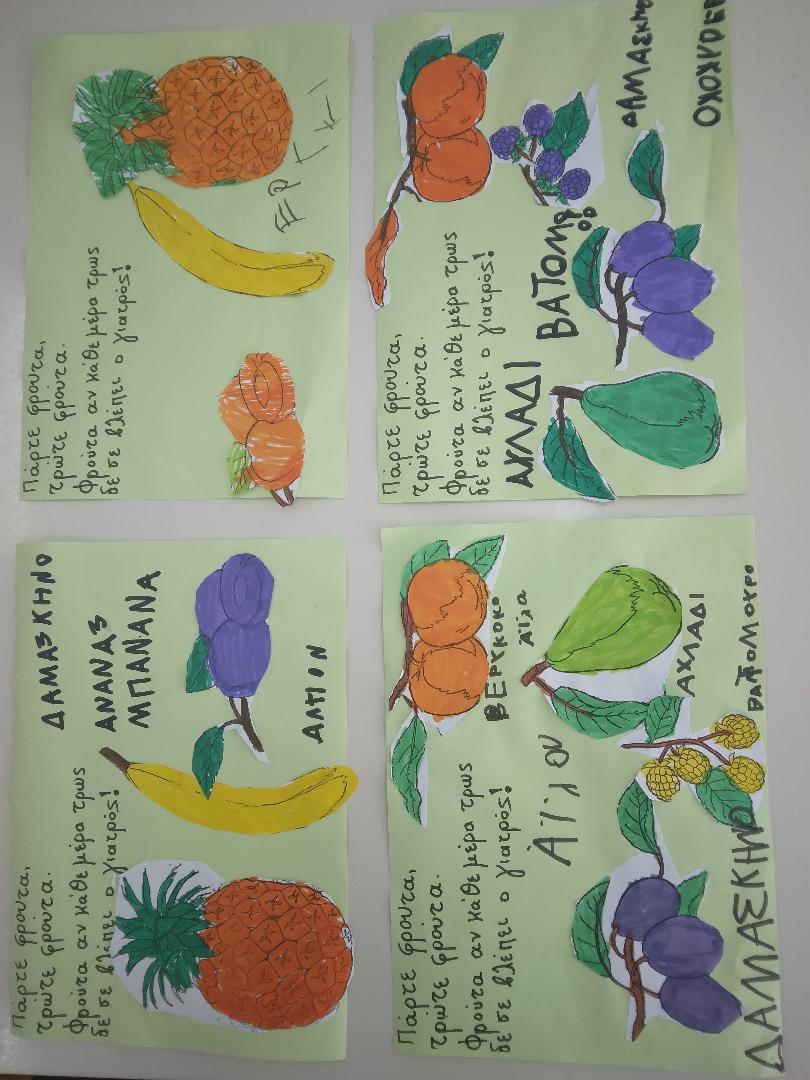 Πάρτε φρούτα,
τρώτε φρούτα.
Φρούτα αν κάθε μέρα τρως
δε σε βλέπει ο γιατρός!
ΔΑΜΑΣΚΗΝΟ
ΑΝΑΝΑΣ
ΜΠΑΝΑΝΑ
Πάρτε φρούτα,
τρώτε φρούτα.
Φρούτα αν κάθε μέρα τρως
δε σε βλέπει ο γιατρός!
Πάρτε φρούτα,
τρώτε φρούτα.
Φρούτα αν κάθε μέρα τρως
δε σε βλέπει ο γιατρός!
ΒΕΡΥΚΟΚΟ
Αϊλα
ΑΧΛΑΔΙ
ΒΑΤΟΜΟΥΡΟ
ΔΑΜΑΣΚΗΝΟ
Πάρτε φρούτα,
τρώτε φρούτα.
Φρούτα αν κάθε μέρα τρως
δε σε βλέπει ο γιατρός!
ΑΧΛΑΔΙ